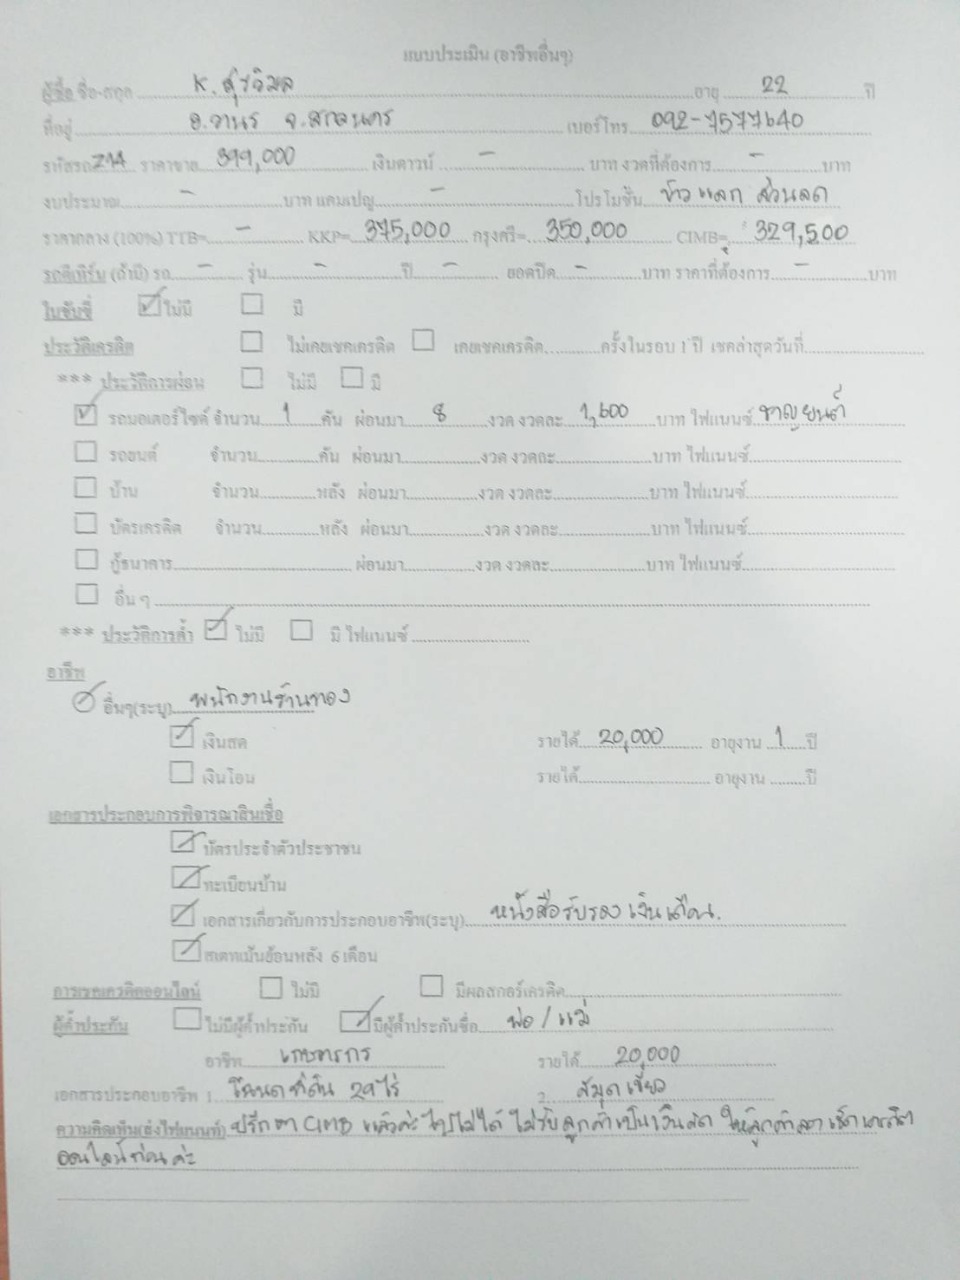 แบบประเมิน (อาชีพอื่นๆ)
ผู้ซื้อ ชื่อ-สกุล K. สุรวิมล อายุ 22 ปี
ที่อยู่ อ.วานร จ.สกลนคร เบอร์โทร 092-7577640
รหัสรถ 214 ราคาขาย 399,000 เงินดาวน์ - บาท งวดที่ต้องการ - บาท
งบประมาณ - บาท แคมเปญ - โปรโมชั่น ข้าวแลกส่วนลด
ราคากลาง (100%) TTB= - KKP= 375,000 กรุงศรี= 350,000 CIMB= 329,500
รถตีเทิร์น (ถ้ามี) รถ - รุ่น - ปี - ยอดปิด - บาท ราคาที่ต้องการ - บาท
ใบขับขี่ ไม่มี มี
ประวัติเครดิต ไม่เคยเชคเครดิต เคยเชคเครดิต ครั้งในรอบ 1 ปี เชคล่าสุดวันที่
*** ประวัติการผ่อน ไม่มี มี
รถมอเตอร์ไซค์ จำนวน 1 คัน ผ่อนมา 8 งวด งวดละ 1,600 บาท ไฟแนนซ์ ชาญยนต์
รถยนต์ จำนวน คัน ผ่อนมา งวด งวดละ บาท ไฟแนนซ์
บ้าน จำนวน หลัง ผ่อนมา งวด งวดละ บาท ไฟแนนซ์
บัตรเครดิต จำนวน หลัง ผ่อนมา งวด งวดละ บาท ไฟแนนซ์
กู้ธนาคาร ผ่อนมา งวด งวดละ บาท ไฟแนนซ์
อื่น ๆ
*** ประวัติการค้ำ ไม่มี มี ไฟแนนซ์
อาชีพ
อื่นๆ(ระบุ) พนักงานร้านทอง
เงินสด รายได้ 20,000 อายุงาน 1 ปี
เงินโอน รายได้ อายุงาน ปี
เอกสารประกอบการพิจารณาสินเชื่อ
บัตรประจำตัวประชาชน
ทะเบียนบ้าน
เอกสารเกี่ยวกับการประกอบอาชีพ(ระบุ) หนังสือรับรองเงินเดือน.
สเตทเม้นย้อนหลัง 6 เดือน
การเชคเครดิตออนไลน์ ไม่มี มีผลสกอร์เครดิต
ผู้ค้ำประกัน ไม่มีผู้ค้ำประกัน มีผู้ค้ำประกันชื่อ พ่อ / แม่
อาชีพ เกษตรกร รายได้ 20,000
เอกสารประกอบอาชีพ 1. โฉนดที่ดิน 29 ไร่ 2. สมุดเขียว
ความคิดเห็น(ส่งไฟแนนท์) ปรึกษา CIMB แล้วค่ะ ไปไม่ได้ ไม่รับลูกค้าเป็นเงินสด ให้ลูกค้าลองเช็คเครดิต
ออนไลน์ก่อนค่ะ